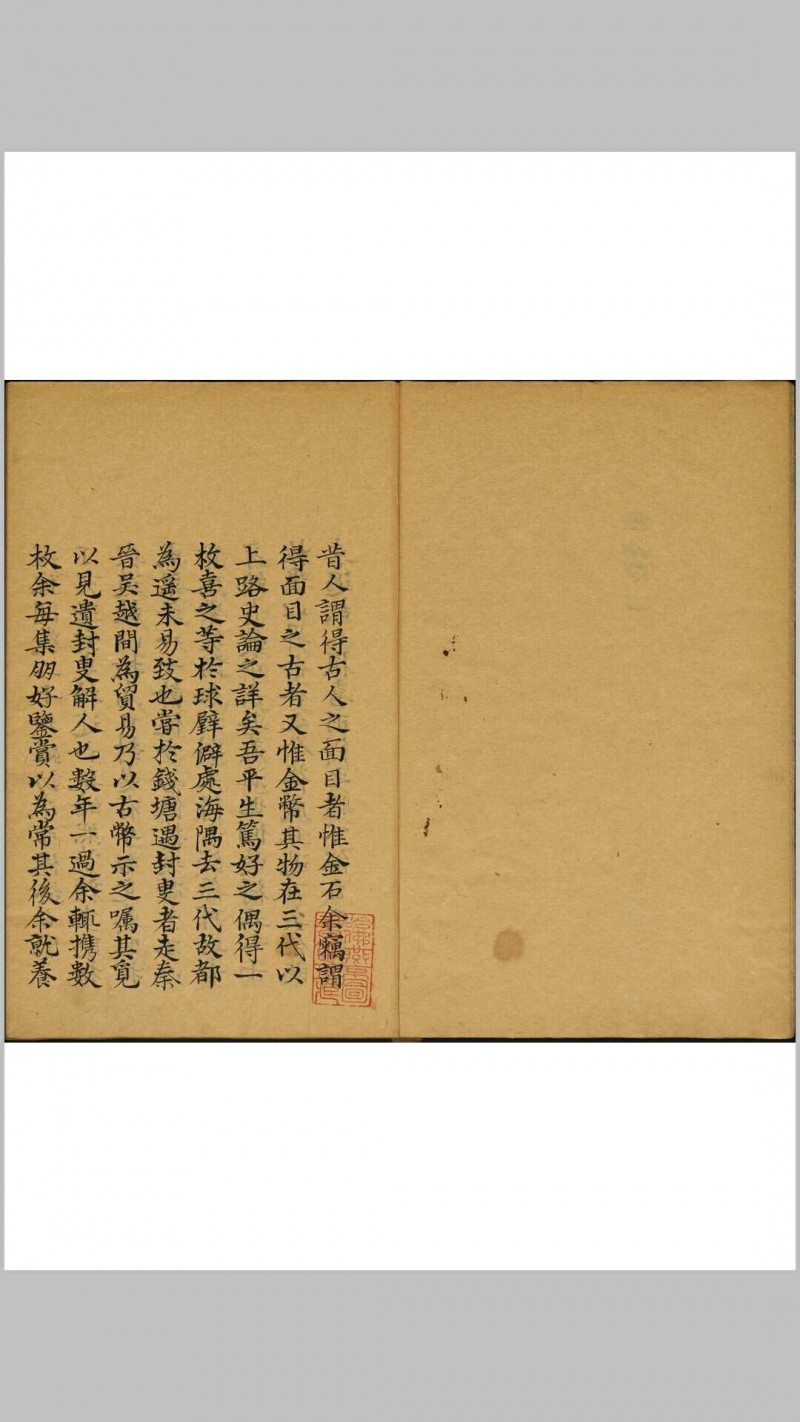 昔人謂得古人之面目者惟金石余竊謂
得面目之古者又惟金幣其物在三代以
上路史論之詳矣吾平生篤好之偶得一
枚喜之等於球璧僻處海隅去三代故都
為遥未易致也嘗於錢塘遇封叟者走秦
晉吴越間為貿易乃以古幣示之嘱其覓
以見遺封叟解人也數年一過余輒攜數
枚余每集朋好鑒賞以為常其後余就養